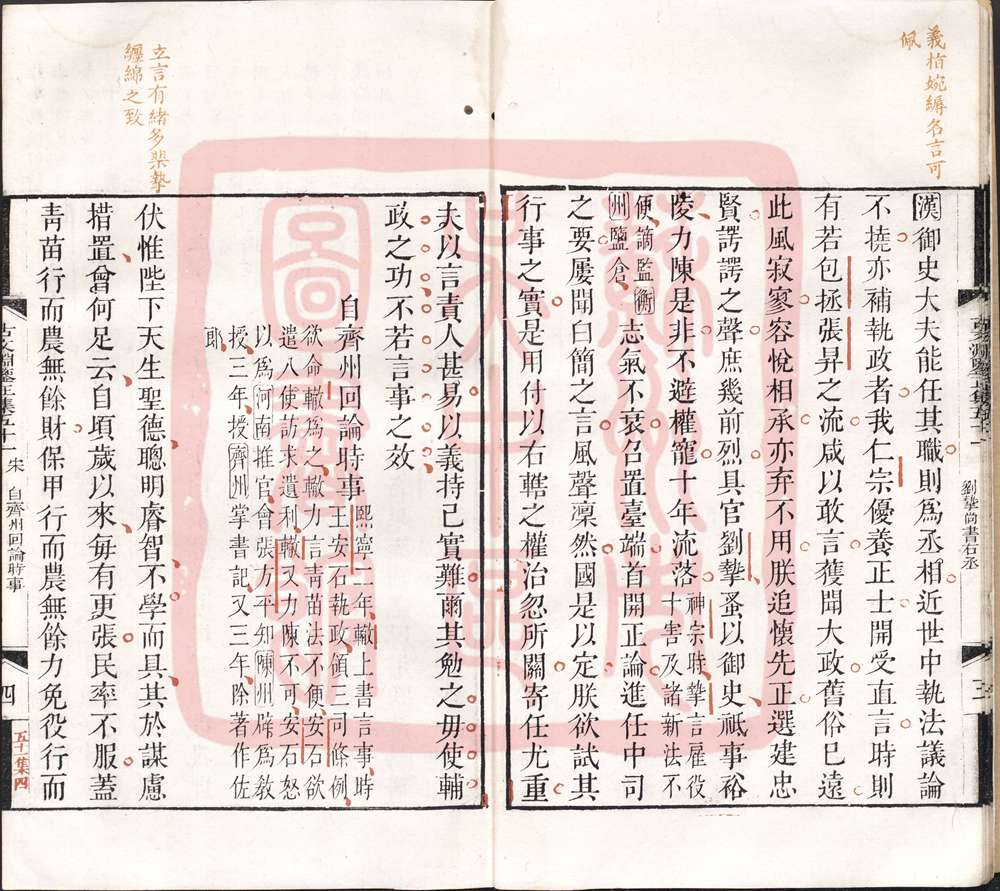 義栢婉縟名言可
佩
漢御史大夫能任其職則爲丞相近世中執法議論
不撓亦補執政者我仁宗優養正士開受直言時則
有若包拯張昇之流咸以敢言獲聞大政舊俗已遠
此風寂寥容悅相承亦弃不用朕追懷先正選建忠
賢諤諤之聲庶幾前烈具官劉摯蚤以御史祗事裕
陵力陳是非不避權寵十年流落神宗時摯言雇役
十害及諸新法不
便謫監衡
州鹽倉志氣不衰召置臺端首開正論進任中司
之要屢聞白簡之言風聲凜然國是以定朕欲試其
行事之實是用付以右轄之權治忽所關寄任尤重
劉摯尚書右丞
三
立言有緒多棐摯
纏綿之致
夫以言責人甚易以義持己實難爾其勉之毋使輔
政之功不若言事之效
自齊州回論時事熙寧二年轍上書言事時
王安石執政領三司條例
欲命轍爲之轍力言青苗法不便安石欲
遣八使訪求遺利轍又力陳不可安石怒
以爲河南推官會張方平知陳州辟爲敎
授三年授齊州掌書記又三年除著作佐
郎
伏惟陛下天生聖德聰明睿智不學而具其於謀慮
措置曾何足云自頃歲以來每有更張民率不服蓋
靑苗行而農無餘財保甲行而農無餘力免役行而
古文淵鑒正集五十一 宋 自齊州回論時事
四
五十一集四